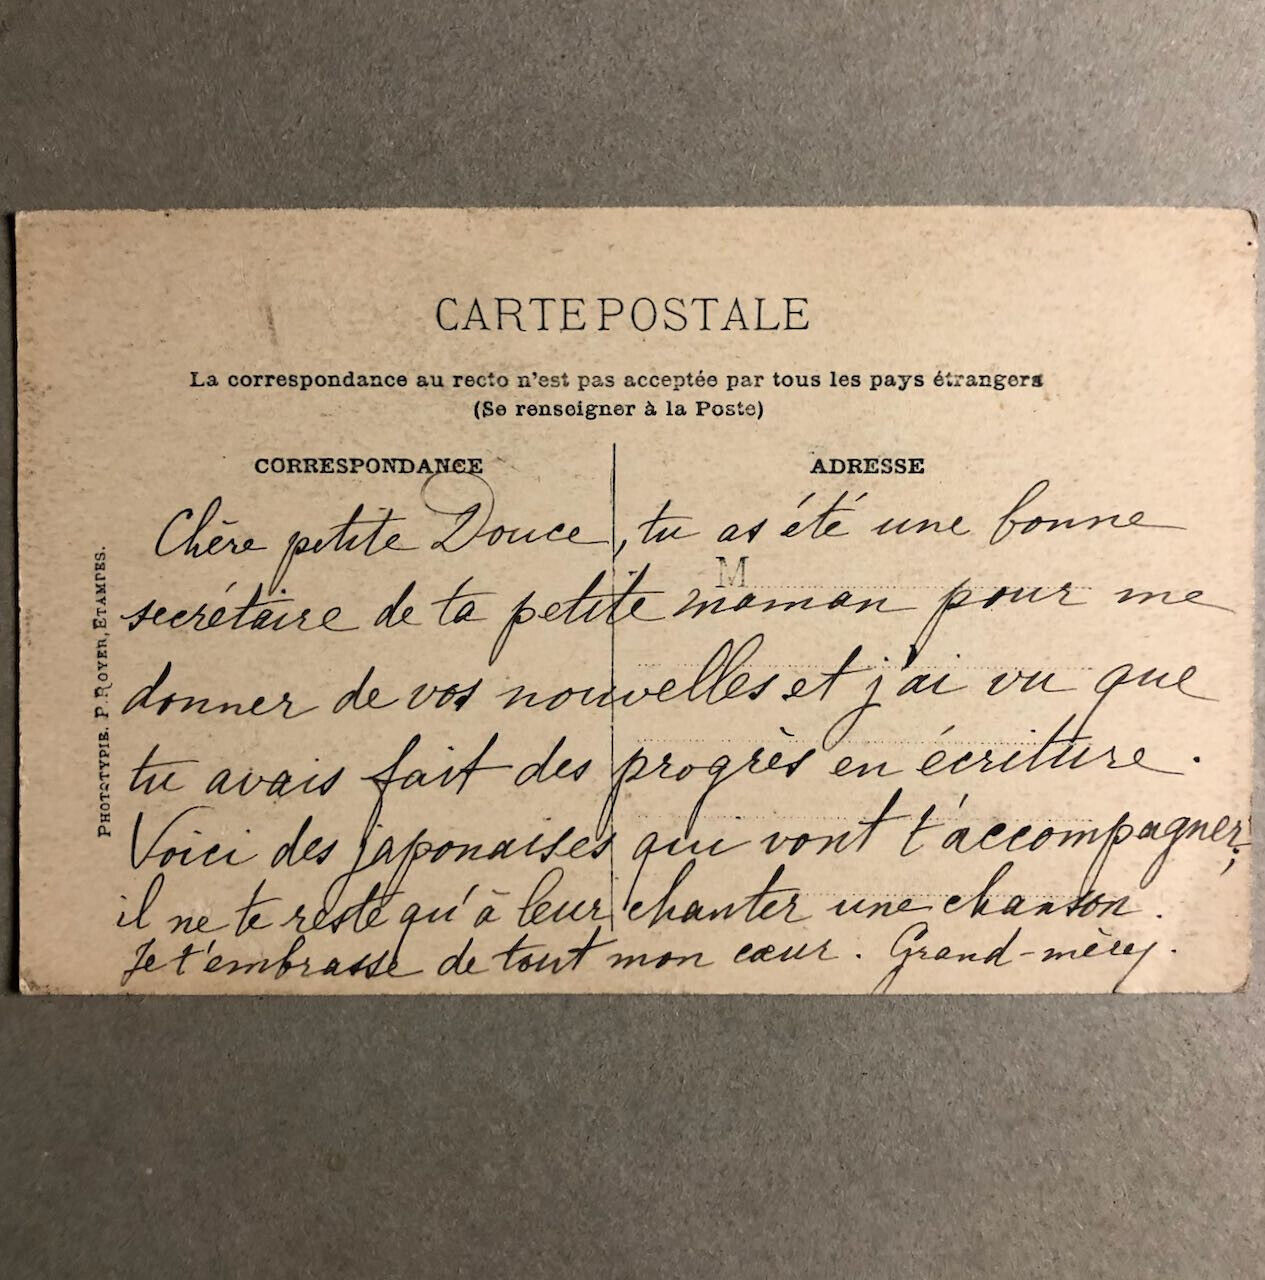 CARTE POSTALE
La correspondance au recto n'est pas acceptée par tous les pays étrangers
(Se renseigner à la Poste)
CORRESPONDANCE ADRESSE
Chère petite Douce, tu as été une bonne
M
secrétaire de ta petite maman pour me
donner de vos nouvelles et j'ai vu que
tu avais fait des progrès en écriture.
Voici des japonaises qui vont t'accompagner;
il ne te reste qu'à leur chanter une chanson.
Je t'embrasse de tout mon cœur. Grand-mèrey.
PHOTOTYPIE. P. ROYER, ETAMPES.